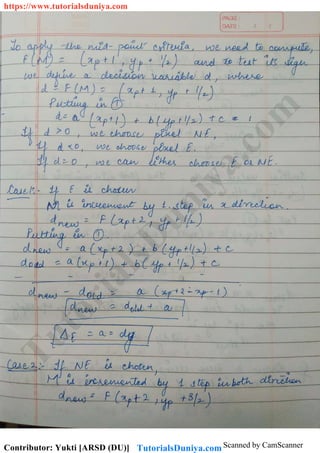 https://www.tutorialsduniya.com
PAGE:
DATE: / /
To apply the mid-point criteria, we need to compute,
F(M) = (xp+1, yp + 1/2) and to test its sign
we define a decision variable d, where
d = F(M) = (xp+1, yp + 1/2)
Putting in ①
d = a(xp+1) + b(yp+1/2) + c
If d > 0, we choose pixel NE,
If d < 0, we choose pixel E.
If d = 0, we can either choose E or NE.
Case 1:- If E is chosen
M is increment by 1 step in x direction.
dnew = F(xp+2, yp+1/2)
Putting in ①.
dnew = a(xp+2) + b(yp+1/2) + c
dold = a(xp+1) + b(yp+1/2) + c
- - - -
dnew - dold = a(xp+2-xp-1)
dnew = dold + a
ΔE = a = dy
Case 2:- If NE is chosen,
M is incremented by 1 step in both direction
dnew = F(xp+2, yp+3/2)
TutorialsDuniya.com
Contributor: Yukti [ARSD (DU)] TutorialsDuniya.com Scanned by CamScanner